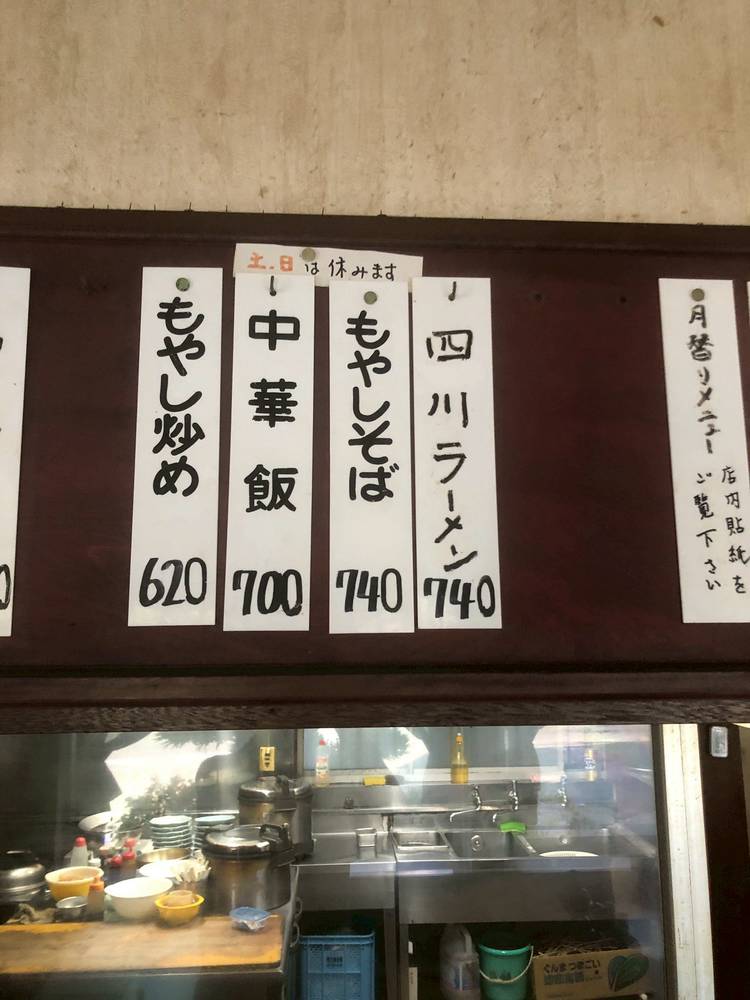 土、日は休みます
もやし炒め
620
中華飯
700
もやしそば
740
四川ラーメン
740
月替りメニュー
店内貼紙を
ご覧下さい
ぐんまつまごい